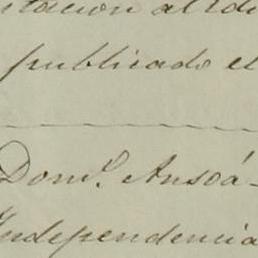 publicado el
Dom.º Ansoá-
Independencia